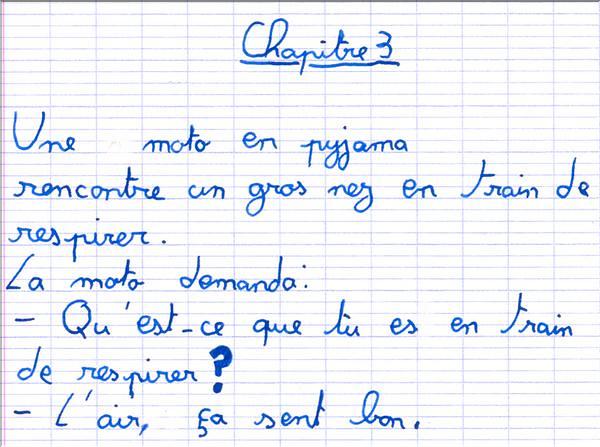 Chapitre 3
Une moto en pyjama
rencontre un gros nez en train de
respirer.
La moto demanda:
- Qu'est-ce que tu es en train
de respirer ?
- L'air, ça sent bon.